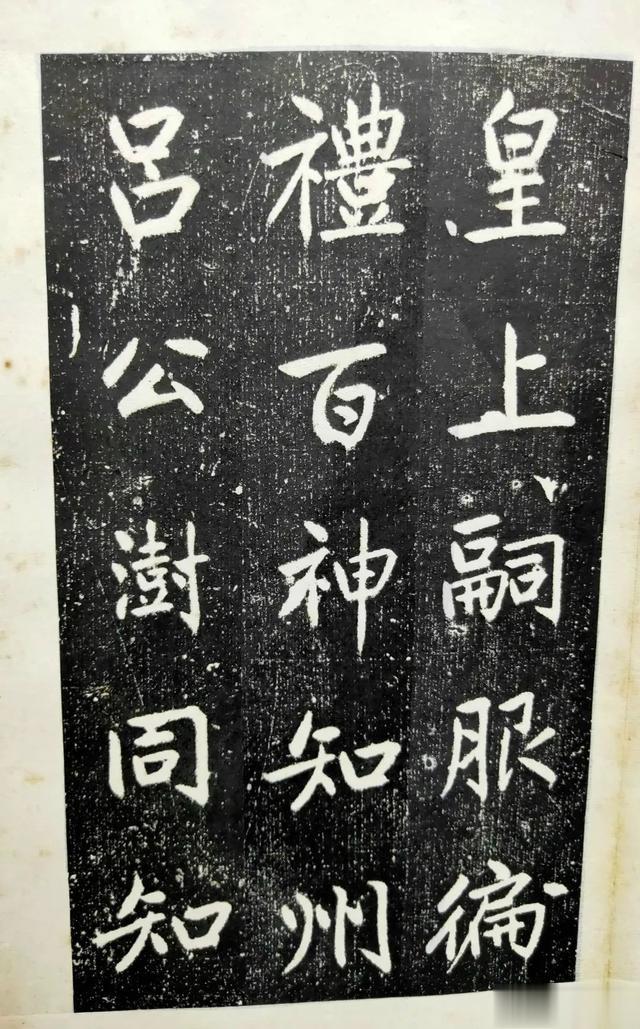 皇上嗣服徧
禮百神知州
呂公澍同知